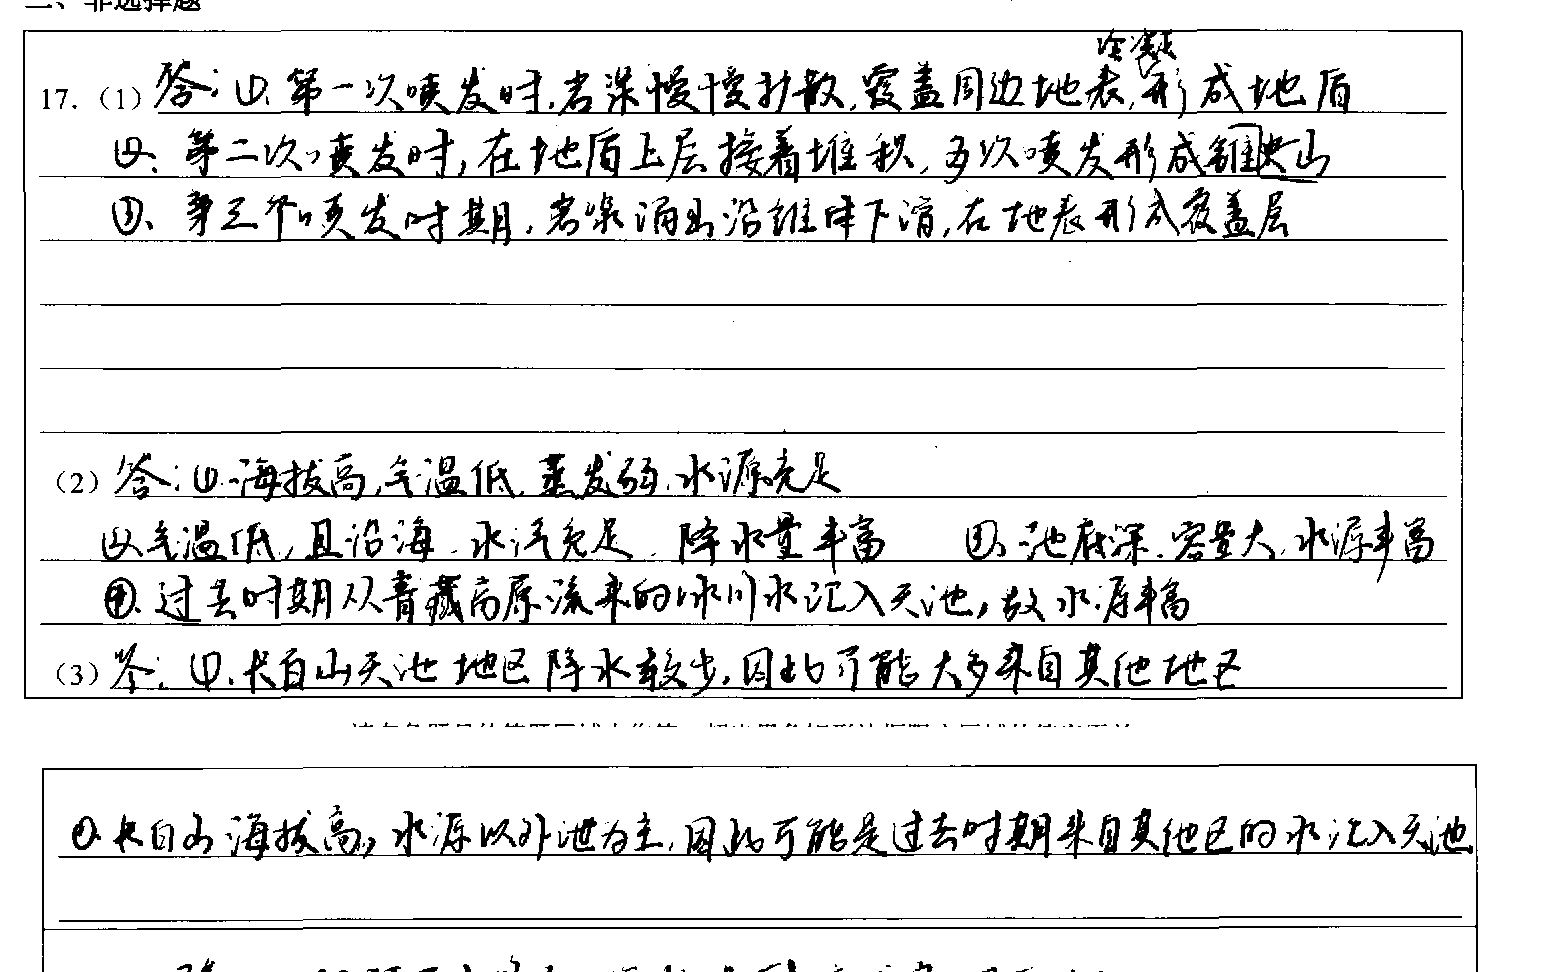 二、非选择题
冷凝
17.（1）答：①、第一次喷发时，岩浆慢慢扩散，覆盖周边地表，形成地盾
②、第二次喷发时，在地盾上层接着堆积，多次喷发形成锥火山
③、第三个喷发时期，岩浆涌出沿锥体下滑，在地表形成覆盖层
（2）答：①海拔高，气温低，蒸发弱，水源充足
②气温低，且沿海，水汽充足，降水量丰富 ③、池底深，容量大，水源丰富
④、过去时期从青藏高原流来的冰川水汇入天池，故水源丰富
（3）答：①、长白山天池地区降水较少，因此可能大多来自其他地区
②长白山海拔高，水源以外泄为主，因此可能是过去时期来自其他区的水汇入天池